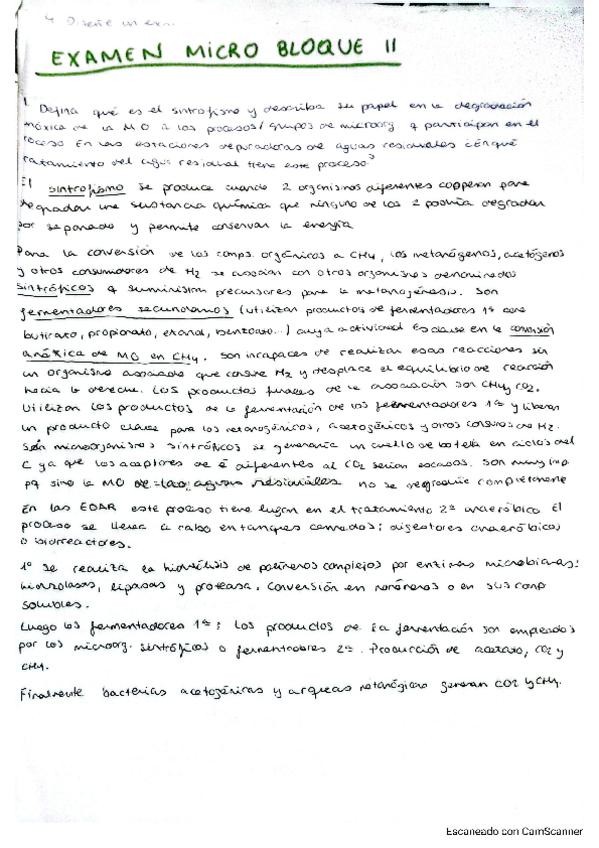 4. Diseñe un exa.
EXAMEN MICRO BLOQUE II
1. Defina qué es el sintrofismo y describa su papel en la degradación
anóxica de la MO a los procesos/grupos de microorg q participan en el
roceso En las estaciones depuradoras de aguas residuales ¿en qué
tratamiento del agua residual tiene este proceso?
El sintrofismo se produce cuando 2 organismos diferentes cooperan para
degradar una sustancia química que ninguno de los 2 podría degradar
por separado y permite conservar la energía
Para la conversión de los comps. orgánicos a CH4, los metanógenos, acetógenos
y otros consumidores de H2 se asocian con otros organismos denominados
sintróficos q suministran precursores para la metanogénesis. Son
fermentadores secundarios (utilizan productos de fermentadores 1os como
butirato, propionato, etanol, benzoato...) cuya actividad es clave en la conversión
anóxica de MO en CH4. Son incapaces de realizar esas reacciones sin
un organismo asociado que consume H2 y desplace el equilibrio de reacción
hacia la derecha. Los productos finales de la asociación son CH4 y CO2.
Utilizan los productos de la fermentación de los fermentadores 1os y liberan
un producto clave para los metanogénicos, acetogénicos y otros consums de H2.
Sin microorganismos sintróficos se generaría un cuello de botella en ciclos del
C ya que los aceptores de e- diferentes al CO2 serían escasos. Son muy imp
pq sino la MO de las aguas residuales no se degradaría completamente
En las EDAR este proceso tiene lugar en el tratamiento 2o anaeróbico El
proceso se lleva a cabo en tanques cerrados: digestores anaeróbicos
o biorreactores.
1o Se realiza la hidrólisis de polímeros complejos por enzimas microbianas:
hidrolasas, lipasas y proteasa. Conversión en monómeros o en sus comp
solubles.
Luego los fermentadores 1os; los productos de la fermentación son empleados
por los microorg. sintróficos o fermentadores 2os. Producción de acetato, CO2 y
CH4.
Finalmente bacterias acetogénicas y arqueas metanógenas generan CO2 y CH4.
Escaneado con CamScanner